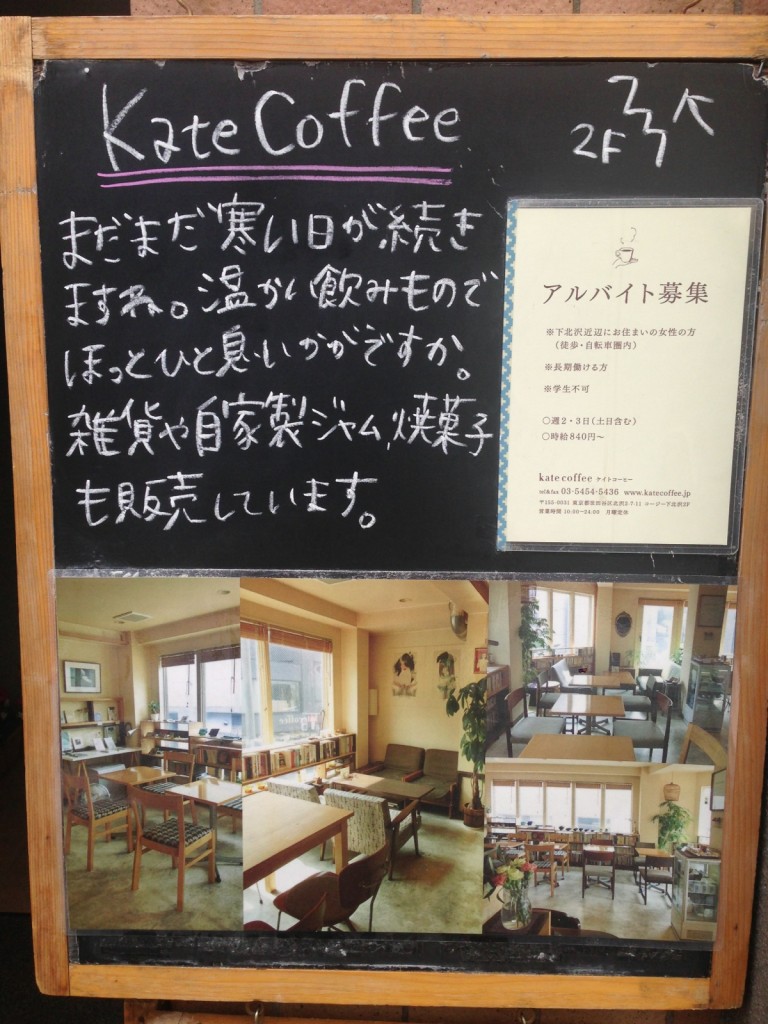 Kate Coffee
2F
まだまだ寒い日が続き
ますね。温かい飲みもので
ほっとひと息いかがですか。
雑貨や自家製ジャム,焼菓子
も販売しています。
アルバイト募集
※下北沢近辺にお住まいの女性の方
(徒歩・自転車圏内)
※長期働ける方
※学生不可
○週2・3日(土日含む)
○時給840円〜
kate coffee ケイトコーヒー
tel&fax 03-5454-5436 www.katecoffee.jp
〒155-0031 東京都世田谷区北沢2-7-11 コージー下北沢2F
営業時間 10:00〜24:00 月曜定休